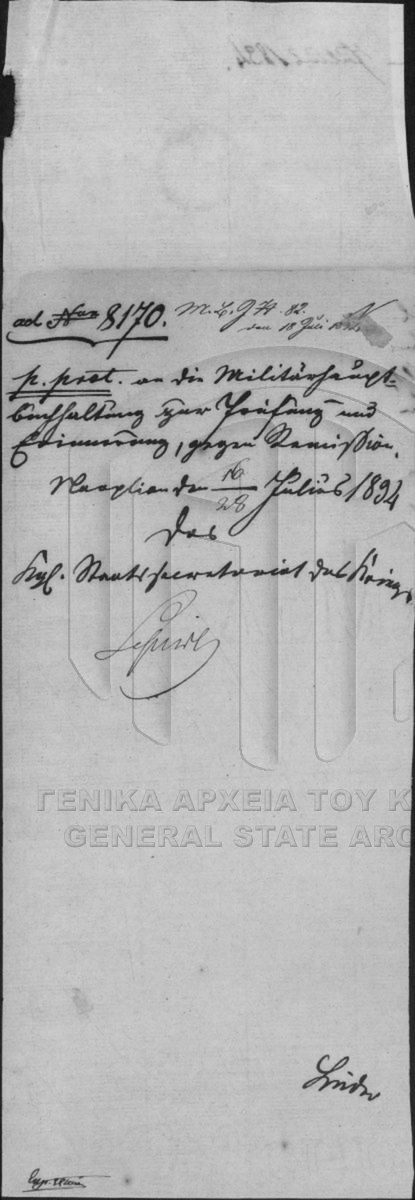 ad Num 8170.
M. B. J. N. 82.
den 18 Juli 1834
p. prot. an die Militärhaupt-
buchhaltung zur Prüfung und
Erinnerung, gegen Remission.
Nauplia den 16/28 Julius 1834
Das
Kgl. Staatssecretariat des Kriegs
Linder
ΓΕΝΙΚΑ ΑΡΧΕΙΑ ΤΟΥ Κ
GENERAL STATE ARC